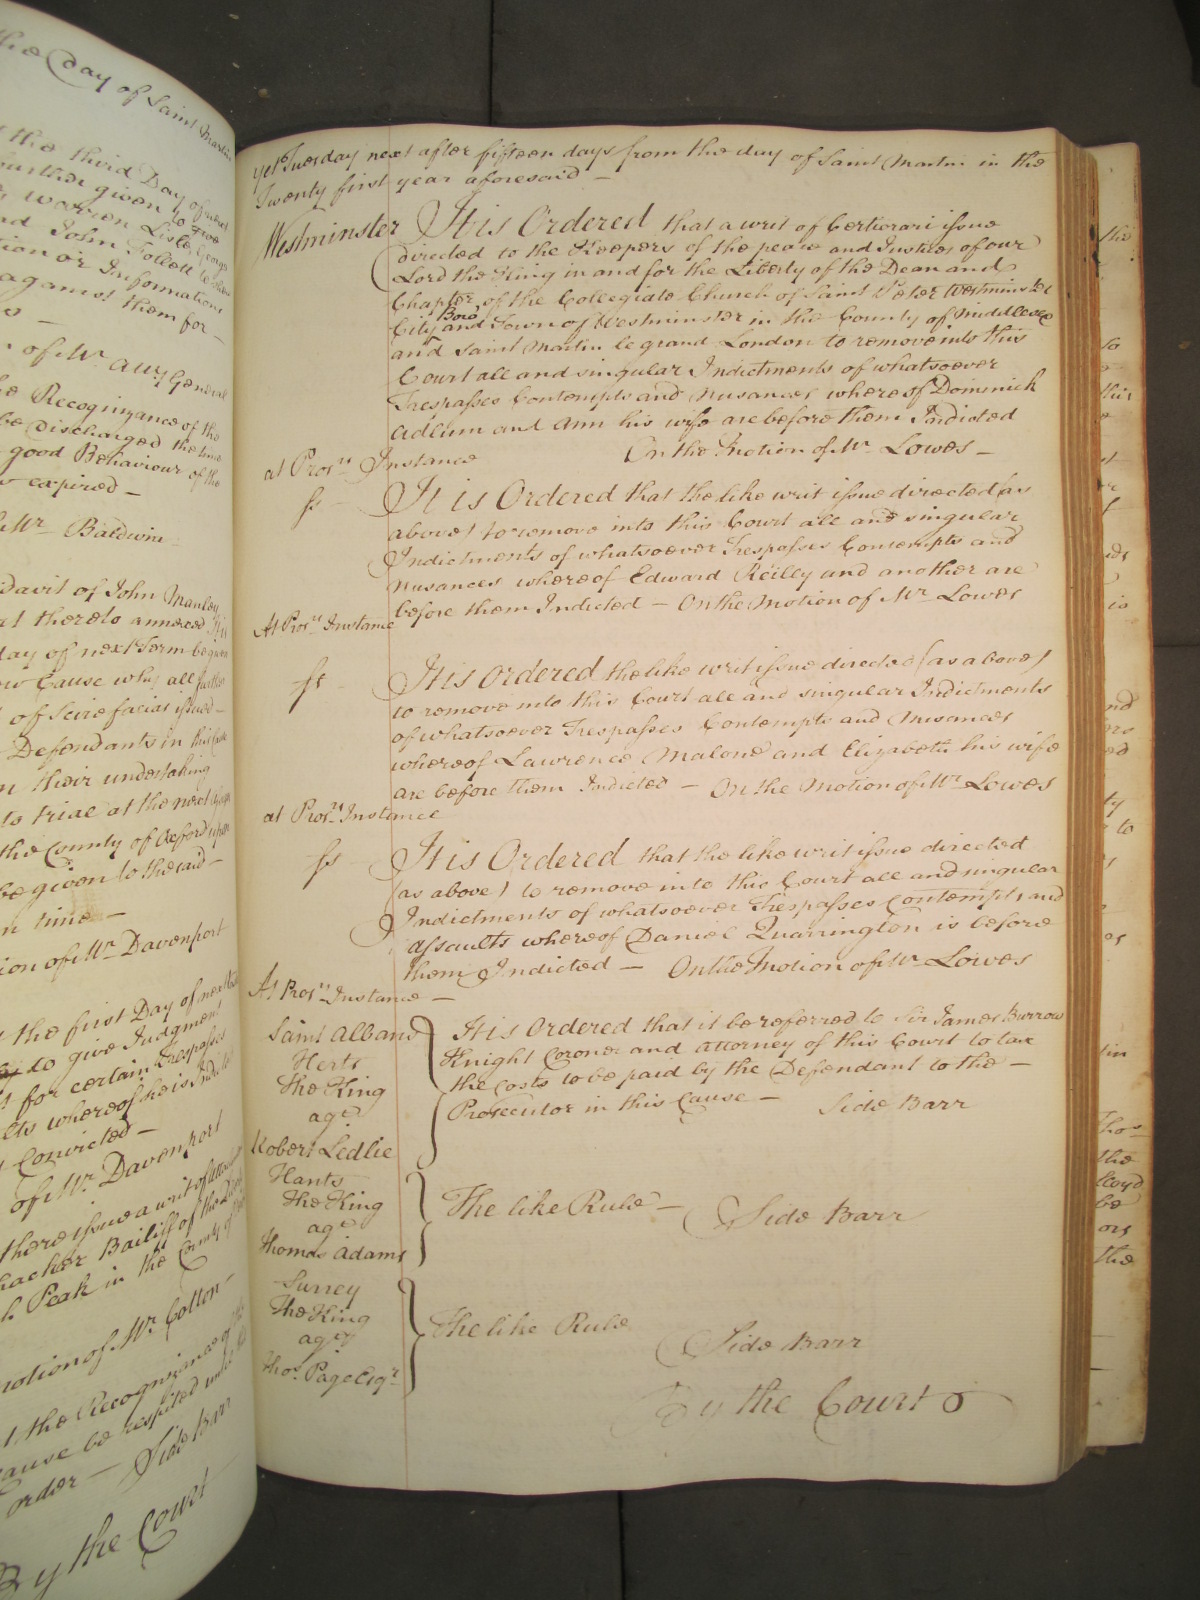 the day of Saint Martin
the third Day of next
further given to
Warren Lisle, George
and John Follett
tion or Information
against them for
of Mr. Atty General
Recognizance of the
be discharged the time
good Behaviour of the
expired —
Mr. Baldwin
davit of John Manley
thereto annexed
day of next Term be given
Cause why all further
of Scire facias issued —
Defendants in this
their undertaking
to trial at the next
the County of Oxford upon
be given to the said —
time —
ion of Mr. Davenport
the first Day of next
to give Judgment
for certain Trespasses
whereof he is
Convicted —
of Mr. Davenport
there issue a writ of
Bailiff of the
Peak in the County of
otion of Mr. Cotton —
the Recognizance of
ause be respited until
order — Side Barr
By the Court
yet Tuesday next after fifteen days from the day of Saint Martin in the
Twenty first year aforesaid —
Westminster It is Ordered that a writ of Certiorari issue
directed to the Keepers of the peace and Justices of our
Lord the King in and for the Liberty of the Dean and
Chapter of the Collegiate Church of Saint Peter Westminster
City Boro' and Town of Westminster in the County of Middlesex
and Saint Martin le grand London to remove into this
Court all and singular Indictments of whatsoever
Trespasses Contempts and Nusances whereof Dominick
Adlum and Ann his wife are before them Indicted
at Prors. Instance On the Motion of Mr. Lowes —
ss — It is Ordered that the like writ issue directed (as
above) to remove into this Court all and singular
Indictments of whatsoever Trespasses Contempts and
Nusances whereof Edward Reilly and another are
before them Indicted — On the Motion of Mr. Lowes
At Prors. Instance
ss — It is Ordered the like writ issue directed (as above)
to remove into this Court all and singular Indictments
of whatsoever Trespasses Contempts and Nusances
whereof Lawrence Malone and Elizabeth his wife
are before them Indicted — On the Motion of Mr. Lowes
at Prors. Instance
ss — It is Ordered that the like writ issue directed
(as above) to remove into this Court all and singular
Indictments of whatsoever Trespasses Contempts and
Assaults whereof Daniel Quarrington is before
them Indicted — On the Motion of Mr. Lowes
At Prors. Instance —
Saint Albans
Herts
The King
agt.
Robert Ledlie
It is Ordered that it be referred to Sir James Burrow
Knight Coroner and Attorney of this Court to tax
the Costs to be paid by the Defendant to the —
Prosecutor in this Cause — Side Barr
Hants
The King
agt.
Thomas Adams
The like Rule — Side Barr
Surrey
The King
agt.
Thos. Page Esqr.
The like Rule Side Barr
By the Court